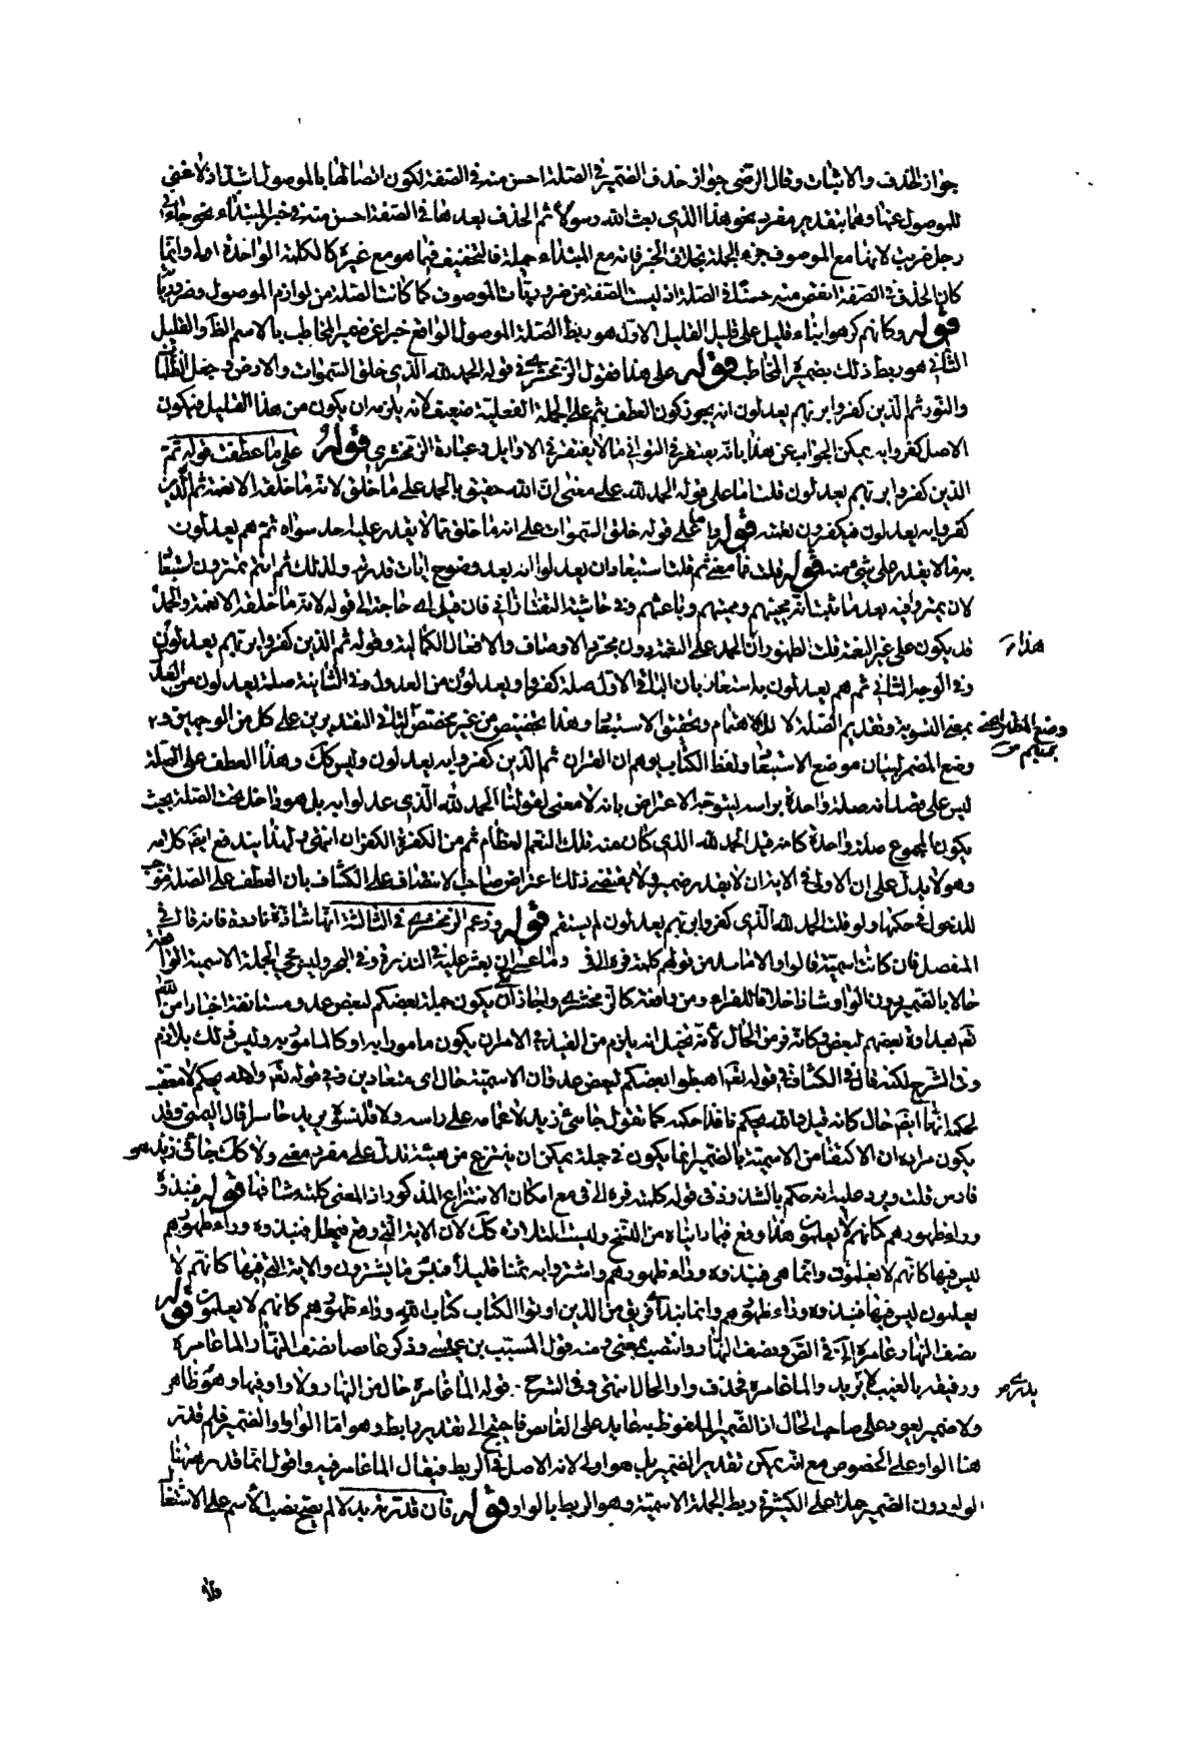 جواز الحذف والاثبات وقال الرضى جواز حذف الضمير فى الصلة احسن منه فى الصفة لكون اتصالها بالموصول اشد اذ لا غنى
للموصول عنها وهما بتقدير مفرد نحو هذا الذى بعث الله رسولا ثم الحذف بعدها فى الصفة احسن منه فى خبر المبتداء نحو جاءنى
رجل ضربت لانها مع الموصوف جزء الجملة بخلاف الخبر فانه مع المبتداء جملة فالتخفيف فيما هو مع غيره كالكلمة الواحدة اولى وانما
كان الحذف فى الصفة انقص منه حسنا فى الصلة اذ ليست الصفة من ضروريات الموصوف كما كانت الصلة من لوازم الموصول وضرورياته
قوله وكانهم كرهوا بناء قليل على قليل القليل الاول هو ربط الصلة الموصول الواقع خبرا عن ضمير المخاطب بالاسم الظاهر والقليل
الثانى هو ربط ذلك بضمير المخاطب قوله على هذا فقول الزمخشرى فى قوله الحمد لله الذى خلق السموات والارض وجعل الظلمات
والنور ثم الذين كفروا بربهم يعدلون انه يجوز كون العطف بثم على الجملة الفعلية ضعيف لانه يلزمه ان يكون من هذا القليل فيكون
الاصل كفروا به يمكن الجواب عن هذا بانه يغتفر فى الثوانى ما لا يغتفر فى الاوايل وعبارة الزمخشرى قوله على ما عطفت قوله ثم
الذين كفروا بربهم يعدلون قلت اما على قوله الحمد لله على معنى ان الله حقيق بالحمد على ما خلق لانه ما خلقه الا نعمة ثم الذين
كفروا به يعدلون فيكفرون نعمته قوله واما على قوله خلق السموات على انه ما خلق مما لا يقدر عليه احد سواه ثم هم يعدلون
به ما لا يقدر على شئ منه قوله قلت فما معنى ثم قلت استبعاد ان يعدلوا به بعد وضوح ايات قدرته ولذلك ثم انتم تمترون استبعاد
لان يمتروا فيه بعد ما ثبت انه محييهم ومميتهم وباعثهم وفى حاشية التفتازانى فان قيل اى حاجة الى قوله لانه ما خلقه الا نعمة والحمد
قد يكون على غير النعمة قلت لظهور ان الحمد على النعمة دون مجرد الاوصاف والافعال الكمالية وقوله ثم الذين كفروا بربهم يعدلون
وفى الوجه الثانى ثم هم يعدلون به اشعار بان الباء فى الاول صلة كفروا ويعدلون من العدول وفى الثانية صلة يعدلون من العدل
بمعنى التسوية وتقديم الصلة للاهتمام وتحقيق الاستبعاد وهذا تخصيص من غير مخصص لتاتى التقديرين على كل من الوجهين و
وضع المضمر لبيان موضع الاستبعاد ولفظ الكتاب يوهم ان القران ثم الذين كفروا به يعدلون وليس كك وهذا العطف على الصلة
ليس على قصد انه صلة واحدة براسه ليتوجه الاعتراض بانه لا معنى لقولنا الحمد لله الذى عدلوا به بل هو داخل تحت الصلة بحيث
يكون المجموع صلة واحدة كانه قيل الحمد لله الذى كان منه تلك النعم العظام ثم من الكفرة الكفران انتهى وبهذا يندفع ايضا كلامه
وهو لا يدل على ان الاولى فى الايذان لا يقدر ضمير ولا يقتضى ذلك اعتراض صاحب الانتصاف على الكشاف بان العطف على الصلة يوجب
الدخول فى حكمها ولو قلت الحمد لله الذى كفروا بربهم يعدلون لم يستقم قوله وزعم الزمخشرى فى الثالثة انها شاذة نادرة فانه قال فى
المفصل فان كانت اسمية فالواو الا ما سلف من قولهم كلمته فوه الى فى وما عسى ان يعثر عليه فى الندرة وفى البحر وليس مجئ الجملة الاسمية الواقعة
حالا بالضمير دون الواو شاذا خلافا للفراء ومن وافقه كالزمخشرى واجاز ان يكون جملة بعضكم لبعض عدو مستانفة اخبارا من الله
تعالى بعداوة بعضهم لبعض وكانه فر من الحال لانه تخيل انه يلزم من القيد فى الامر ان يكون مامورا به او كالمامور به وليس ذلك بلازم
وفى الشرح لكنه قال فى الكشاف فى قوله تعالى اهبطوا بعضكم لبعض عدو ان الاسمية حال اى متعادين وفى قوله تعالى والله يحكم لا معقب
لحكمه انها ايضا حال كانه قيل والله يحكم نافذا حكمه كما تقول جاءنى زيد لا عمامة على راسه ولا قلنسوة يريد حاسرا قال اليمنى وقد
يكون مراده ان الاكتفاء من الاسمية بالضمير انما يكون فى جملة يمكن ان ينتزع من هيئته تدل على مفرد معنى ولا كك جاءنى زيد هو
فارس قلت ويرد عليه انه حكم بالشذوذ فى قوله كلمته فوه الى فى مع امكان الانتزاع المذكور اذ المعنى كلمته مشافها قوله فنبذوه
وراء ظهورهم كانهم لا يعلمون هذا وقع فيما رايناه من النسخ وليست التلاوة كك لان الاية التى وقع فيها فنبذوه وراء ظهورهم
ليس فيها كانهم لا يعلمون وانما هى فنبذوه وراء ظهورهم واشتروا به ثمنا قليلا فبئس ما يشترون والاية التى فيها كانهم لا
يعلمون ليس فيها فنبذوه وراء ظهورهم وانما نبذ فريق من الذين اوتوا الكتاب كتاب الله وراء ظهورهم كانهم لا يعلمون قوله
نصف النهار غامره الخ فى الصحاح ونصف النهار وانتصف بمعنى ومنه قول المسيب بن علس وذكر غائصا نصف النهار الماء غامره
ورفيقه بالغيب لا يدرى يريد والماء غامره فحذف واو الحال انتهى وفى الشرح قوله الماء غامره حال من النهار ولا واو فيها وهو ظاهر
ولا ضمير يعود على صاحب الحال اذ الضمير الملفوظ به عايد على الغائص فاحتيج الى تقدير رابط وهو اما الواو او الضمير فلم قدر
هنا الواو على الخصوص مع انه يمكن تقدير الضمير بل هو اولى لانه الاصل فى الربط فيقال الماء غامره فيه واقول انما قدر هنا
الواو دون الضمير حملا على الكثير فى ربط الجملة الاسمية وهو الربط بالواو قوله فان قدرته بدلا لم يصح نصب الاسم على الاشتغال
هذا
وضع المظهر
يدرى